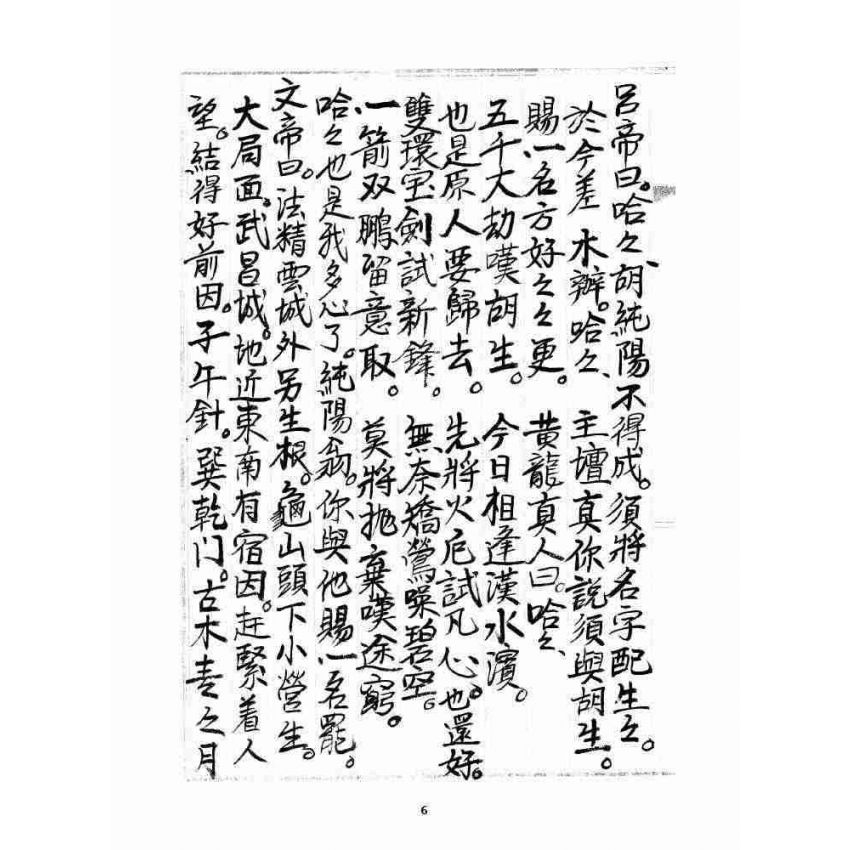 呂帝曰。哈々、胡純陽不得成。須將名字配生々。
於今差 水辦。哈々、主壇真你說須與胡生。
賜、一名方好々々更。黃龍真人曰。哈々、
五千大劫嘆胡生。今日相逢漢水濱。
也是原人要歸去。先將火尼試凡心。也還好。
雙環宝劍試新鋒。無奈嬌鶯噪碧空。
一箭双鵬留意取。莫將抛棄嘆途窮。
哈々也是我多心了。純陽翁。你與他賜、一名罷。
文帝曰。法精雲城外另生根。龜山頭下小營生。
大局面。武昌城。地近東南有宿因。赶緊着人
望。結得好前因。子午針。巽乾门。古木青々月
6